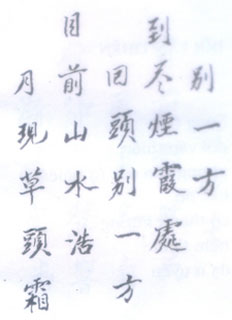 別一方
到尽煙霞處
回頭別一方
目前山水浩
月現草頭霜